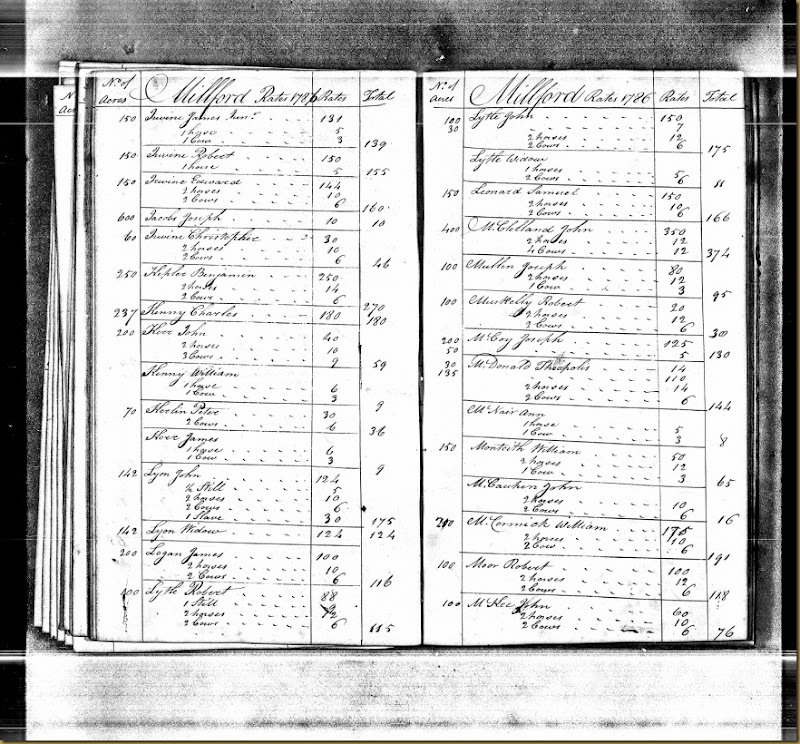 No. of Acres Millford Rates 1786 Rates Total
150 Irwine James Junr. 131
1 horse 5
1 Cow 3 139
150 Irvine Robert 150
1 horse 5 155
150 Irwine Edward 144
2 horses 10
2 Cows 6 160
600 Jacobs Joseph 10 10
60 Irwine Christopher 30
2 horses 10
2 Cows 6 46
250 Kepler Benjamin 250
2 horses 14
2 Cows 6 270
237 Kenny Charles 180 180
200 John 40
2 horses 10
3 Cows 9 59
Kenny William
1 horse 6
1 Cow 3 9
70 Kerlin Peter 30
2 Cows 6 36
James
1 horse 6
1 Cow 3 9
142 Lyon John 124
½ Still 5
2 horses 10
2 Cows 6
1 Slave 30 175
142 Lyon Widow 124 124
200 Logan James 100
2 horses 10
2 Cows 6 116
400 Lytle Robert 88
1 Still
2 horses 12
2 Cows 6 115
No. of Acres Millford Rates 1786 Rates Total
100 Lytle John 150
30 7
2 horses 12
2 Cows 6 175
Lytle Widow
1 horse 5
2 Cows 6 11
150 Leonard Samuel 150
2 horses 10
2 Cows 6 166
400 McClelland John 350
2 horses 12
4 Cows 12 374
100 Mullin Joseph 80
2 horses 12
1 Cow 3 95
100 Robert 20
2 horses 12
2 Cows 6 30
200 McCoy Joseph 125
50 5 130
30 McDonald Theopolis 14
135 110
2 horses 14
2 Cows 6 144
McNair Ann
1 horse 5
1 Cow 3 8
150 Monteith William 50
2 horses 12
1 Cow 3 65
John
2 horses 10
2 Cows 6 16
200 McCormick William 175
2 horses 10
2 Cow 6 191
100 Moor Robert 100
2 horses 12
2 Cows 6 118
100 McKee John 60
2 horses 10
2 Cows 6 76